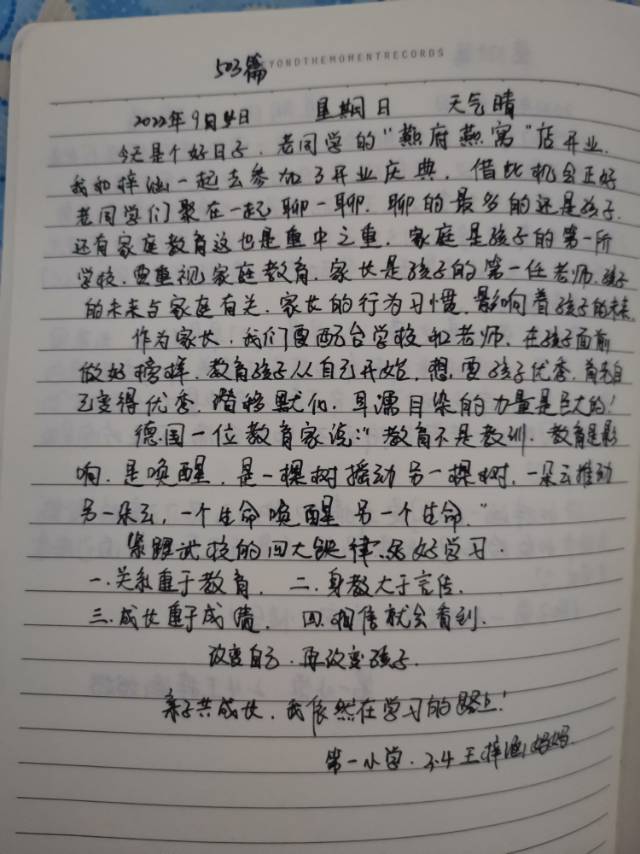 503篇
YONDTHEMOMENTRECORDS
2022年9月4日 星期日 天气晴
今天是个好日子.老同学的“燕府燕窝”店开业.
我和梓涵一起去参加了开业庆典.借此机会正好
老同学们聚在一起聊一聊.聊的最多的还是孩子.
还有家庭教育这也是重中之重.家庭是孩子的第一所
学校.要重视家庭教育.家长是孩子的第一任老师.孩子
的未来与家庭有关.家长的行为习惯.影响着孩子的未来.
作为家长.我们要配合学校和老师.在孩子面前
做好榜样.教育孩子从自己开始.想要孩子优秀.首先自
己变得优秀.潜移默化.耳濡目染的力量是巨大的!
德国一位教育家说:“教育不是教训.教育是影
响.是唤醒.是一棵树摇动另一棵树.一朵云推动
另一朵云,一个生命唤醒另一个生命.”
紧跟试校的四大铁律.好好学习.
一.关系重于教育. 二.身教大于言传.
三.成长重于成绩. 四.相信就会看到.
改变自己.再改变孩子.
亲子共成长.我依然在学习的路上!
第一小学.3.4 王梓涵妈妈.